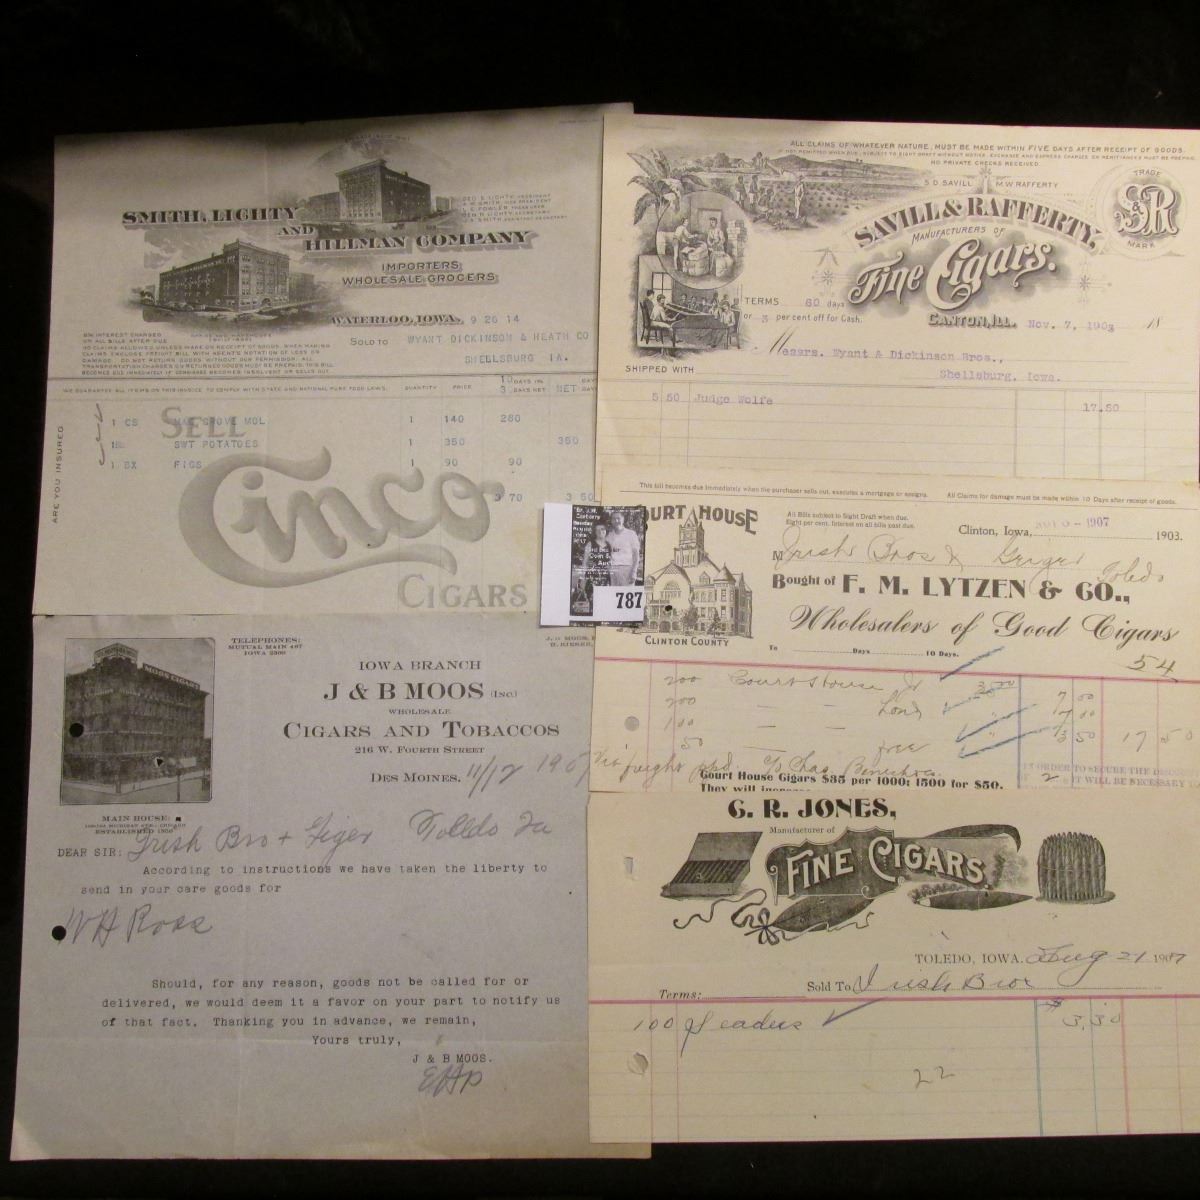 SMITH, LIGHTY
AND
HILLMAN COMPANY
IMPORTERS
WHOLESALE GROCERS
WATERLOO, IOWA. 9 26 14
SOLD TO WYANT DICKINSON & HEATH CO
SHELLSBURG IA.
WE GUARANTEE ALL ITEMS ON THIS INVOICE TO COMPLY WITH STATE AND NATIONAL PURE FOOD LAWS.
QUANTITY PRICE
ARE YOU INSURED
1 CS MOL 1 140 280
SWT POTATOES 1 350 350
1 BX FIGS 1 90 90
3 70 3 50
SELL
Cinco
CIGARS
ALL CLAIMS OF WHATEVER NATURE, MUST BE MADE WITHIN FIVE DAYS AFTER RECEIPT OF GOODS.
NO PRIVATE CHECKS RECEIVED
S. D. SAVILL M. W. RAFFERTY
SAVILL & RAFFERTY,
MANUFACTURERS OF
Fine Cigars.
TRADE
S&R
MARK
TERMS 60 days
or 3 per cent off for Cash.
CANTON, ILL. Nov. 7, 1903 18
Messrs. Wyant & Dickinson Bros.,
Shellsburg, Iowa.
SHIPPED WITH
5 50 Judge Wolfe 17.50
This bill becomes due immediately when the purchaser sells out, executes a mortgage or assigns. All Claims for damage must be made within 10 Days after receipt of goods.
COURT HOUSE
CLINTON COUNTY
All Bills subject to Sight Draft when due.
Eight per cent. Interest on all bills past due.
Clinton, Iowa, 1907 1903.
M Irish Bros & Geiger
Toledo
Bought of F. M. LYTZEN & CO.,
Wholesalers of Good Cigars
To Days 10 Days.
54
200 Court House Jr 35.00 7 00
200 — — Lond 7 00
100 — — 3 50 17 50
50 — free
Via freight ppd.
Court House Cigars $35 per 1000; 1500 for $50.
They will increase
787
TELEPHONES:
MUTUAL MAIN 487
IOWA 2360
MOOS CIGARS
MAIN HOUSE:
ESTABLISHED
IOWA BRANCH
J & B MOOS (INC.)
WHOLESALE
CIGARS AND TOBACCOS
216 W. FOURTH STREET
DES MOINES, 11/12 1907
DEAR SIR: Irish Bro + Giger Tolldo Ia
According to instructions we have taken the liberty to
send in your care goods for
W H Ross
Should, for any reason, goods not be called for or
delivered, we would deem it a favor on your part to notify us
of that fact. Thanking you in advance, we remain,
Yours truly,
J & B MOOS.
G. R. JONES,
Manufacturer of
FINE CIGARS.
TOLEDO, IOWA. Aug 21 1907
Terms: Sold To Irish Bros
100 Leaders $ 3.30
22